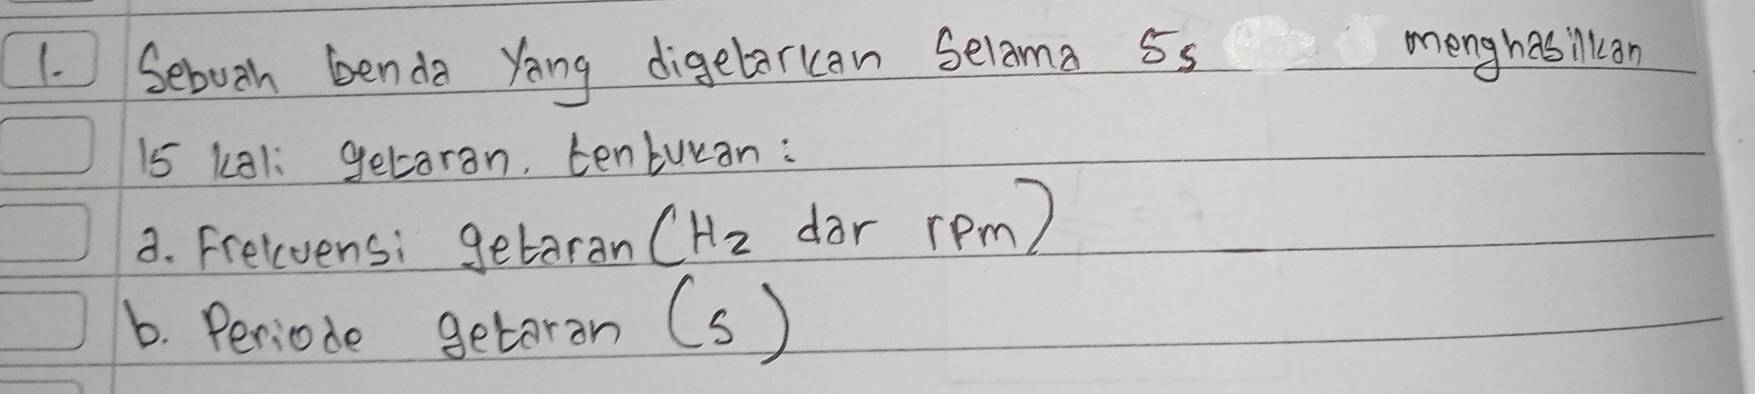 1. Sebuah benda yang digetarkan Selama 5s menghasilkan
15 kali getaran. tentukan:
a. Frekuensi getaran (Hz dar rpm)
b. Periode getaran (s)